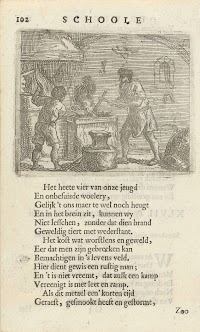 102 SCHOOLE
Het heete vier van onze jeugd
En onbesuisde woelery,
Gelijk't ons maer te wel noch heugt
En in het brein zit, kunnen wy
Niet lesschen, zonder dat dien brand
Geweldig tiert met wederstant.
Het kost wat worstlens en geweld,
Eer dat men zijn gebreken kan
Bemachtigen in 's levens veld.
Hier dient gewis een rustig man;
En 't is niet vreemt, dat zulk een kamp
Vereenigt is met leet en ramp.
Als dit metael een' korten tijd
Geraest, gesmookt heeft en gestormt,
Zoo